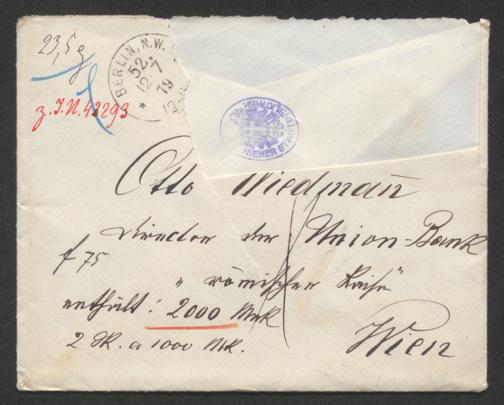 23,5 g
BERLIN, N.W.
52.
12 7
79
z. I.N. 43293
WIENER STADT
Otto Wiedmann
Director der Union-Bank
f 75
" römischer Kaiser"
enthält: 2000 Mrk
2 St. a 1000 Mk.
Wien